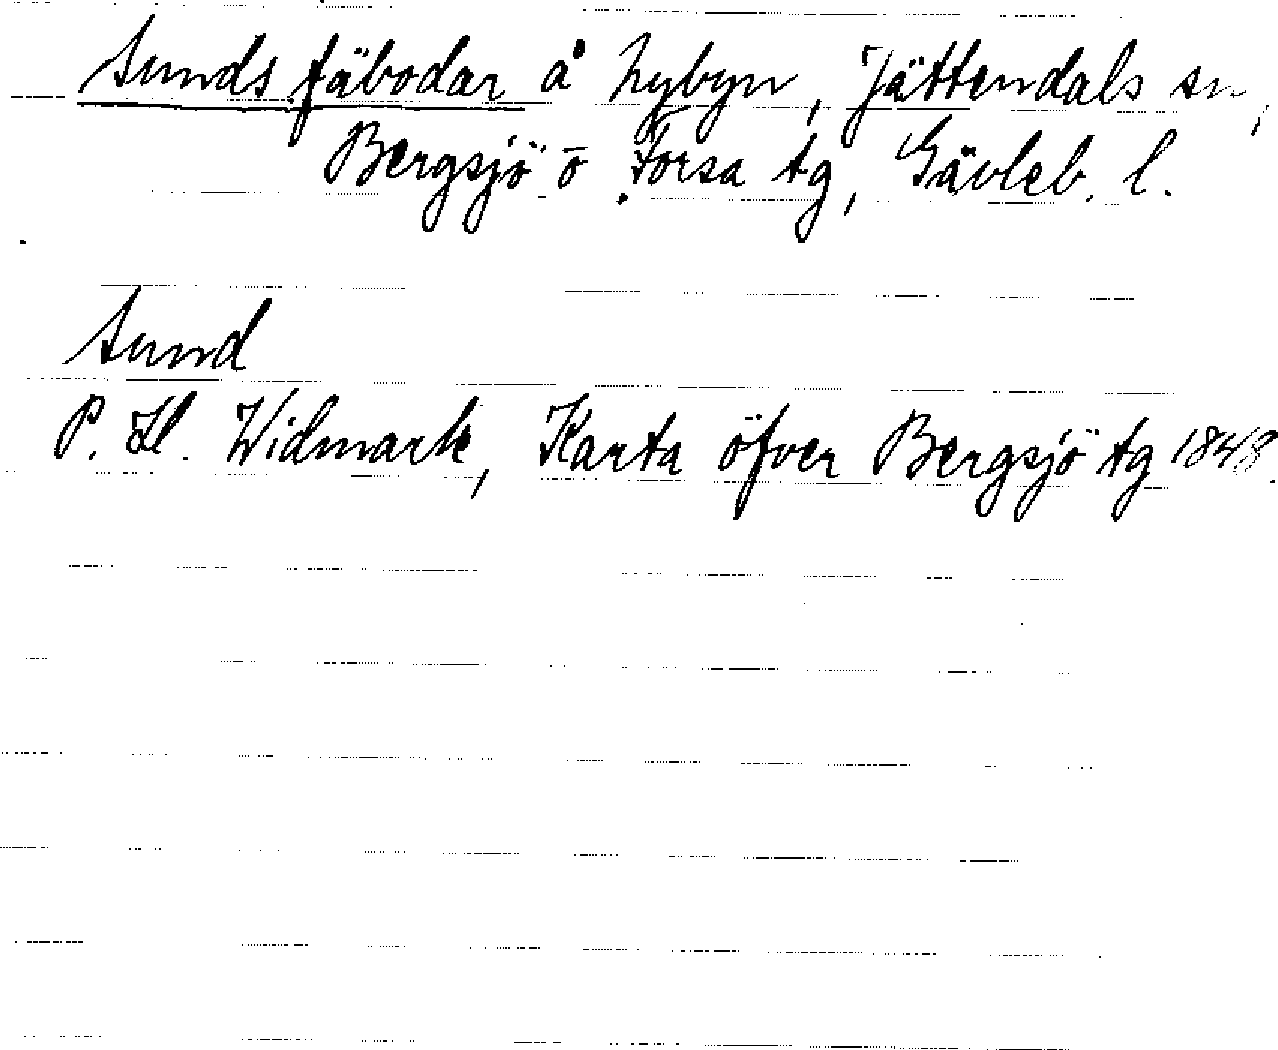 Sunds fäbodar å hybyn, Jättendals sn,
Bergsjö o. Forsa tg, Gävleb. l.
Sund
P. H. Widmark, Karta öfver Bergsjö tg 1848.